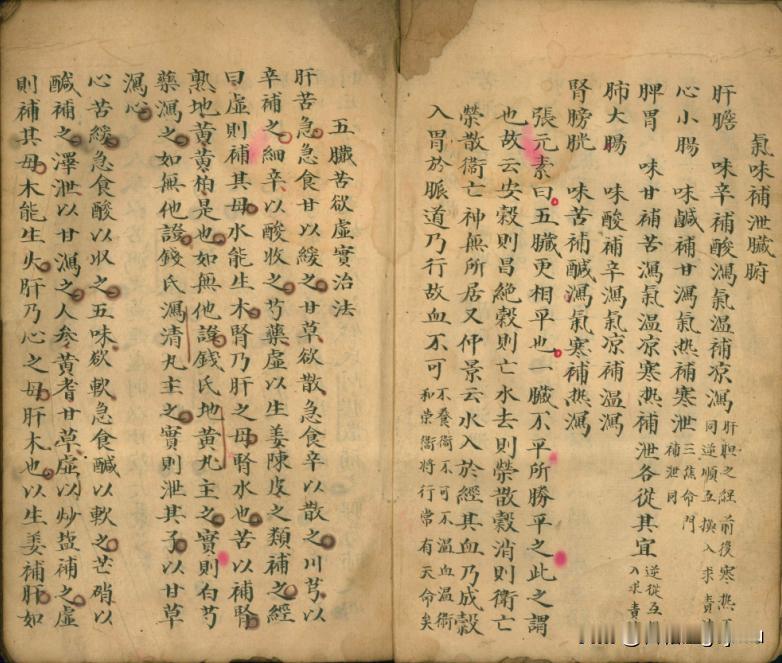 氣味補泄臟腑
肝膽 味辛補酸瀉氣溫補凉瀉 肝胆之経前後寒熱
同逆順互換入求責
心小腸 味鹹補甘瀉氣热補寒泄 三焦命門
補泄同
脾胃 味甘補苦瀉氣溫凉寒熱補泄各從其宜 逆從互
入求責
肺大腸 味酸補辛瀉氣凉補溫瀉
腎膀胱 味苦補鹹瀉氣寒補热瀉
張元素曰五臟更相平也一臟不平所勝平之此之謂
也故云安榖則昌絶榖則亡水去則榮散榖消則衛亡
榮散衛亡神無所居又仲景云水入於經其血乃成榖
入胃於脈道乃行故血不可 不養衛不可不溫血溫衛
和荣衛將行常有天命矣
五臟苦欲虛實治法
肝苦急急食甘以緩之甘草欲散急食辛以散之川芎以
辛補之細辛以酸收之芍藥虛以生姜陳皮之類補之經
曰虛則補其母水能生木腎乃肝之母腎水也苦以補腎
熟地黃黃柏是也如無他證錢氏地黃丸主之實則白芍
藥瀉之如無他證錢氏瀉清丸主之實則泄其子以甘草
瀉心
心苦緩急食酸以收之五味欲軟急食鹹以軟之芒硝以
鹹補之澤泄以甘瀉之人参黃耆甘草虛以炒塩補之虛
則補其母木能生火肝乃心之母肝木也以生姜補肝如